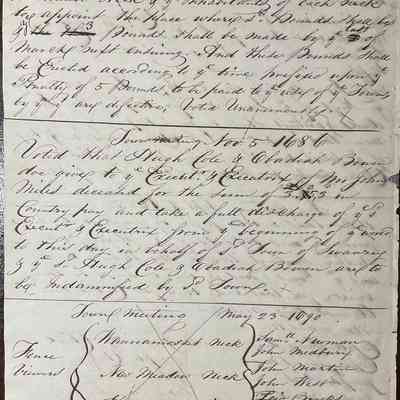 Inhabitants of Each Neck
by appoint the place where sd Pounds shall be
& the Pounds shall be made by ye
of March next ensuing And those Pounds Shall
be Erected according to ye time prefixed upon ye
Penalty of 5 Pounds to be paid to ye use of ye Town
by ye any defective, Voted Unanimously
Town meeting Nov. 5 1686
Voted that Hugh Cole & Obadiah Bowen
doe give to ye Execut. & Executrix of Mr John
Miles deceased for the sum of in
Country pay and take a full discharge of ye sd
Execut. & Executrix from ye beginning of ye word
to this day in behalf of sd Town of Swanzey
& ye sd Hugh Cole & Obadiah Bowen are to
be Indamnified by sd Town.
Town Meeting May 23 1690
Wannamoiset Neck Saml. Newman
John Medbury
Fence New Meadow Neck John Martin
Viewers John West